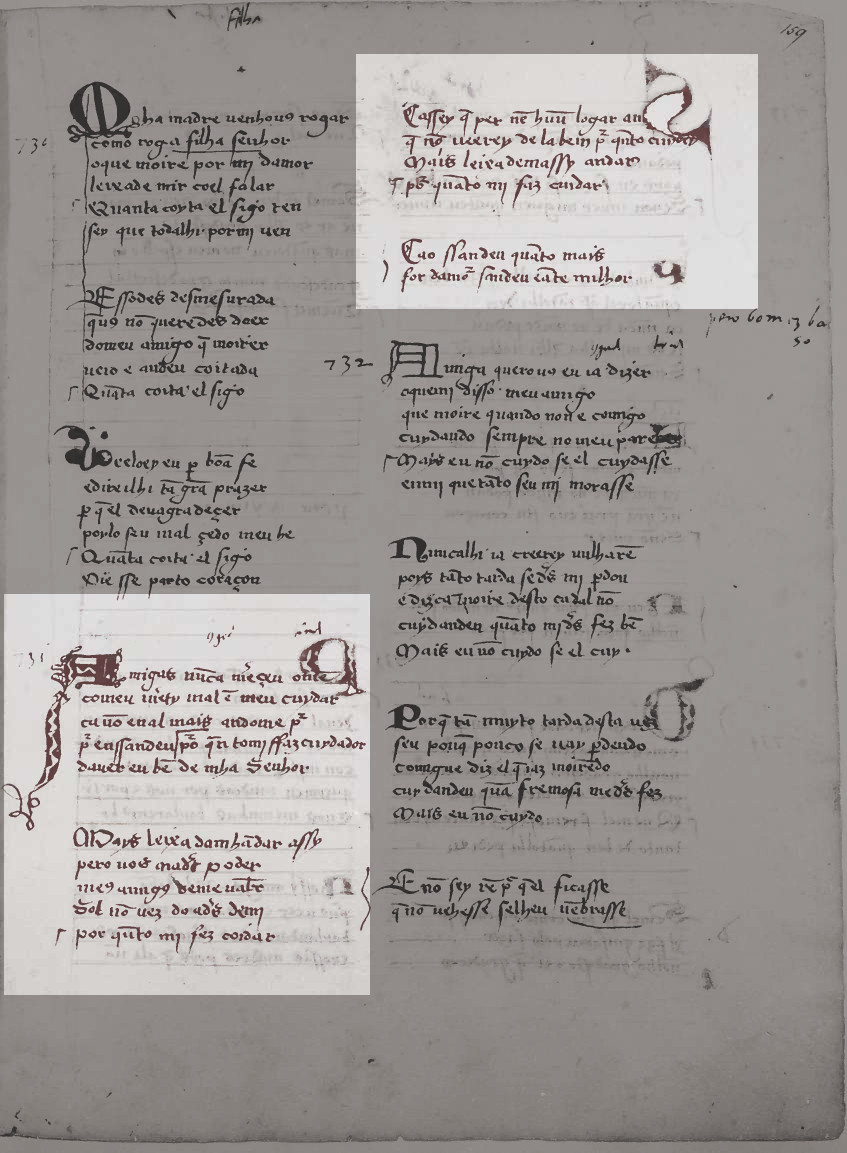 filha
159
730
Mha madre uenhouꝯ rogar
como roga filha senhor
oque moire por mj damor
leixade mir coel falar
Quanta coyta el sigo ten
sey que todalhi por mi uen
Essodes desmesurada
q̄uꝯ nō q̄redes doer
domeu amigo q̄ moirer
ueio e anden coitada
Quāta coita el sigo
Veeloey eu ꝑ bōa fe
edireilhi tā grā prazer
ꝑ q̄ el deuagradeçer
poylo seu mal çedo meu he
Quāta coita el sigo
Die sse parto coraçon
731
Amigus nūca mēçeu ome
comeu mēty mal ē meu cuydar
ca nō enal mais andome
enssandeu pō q̄n tomi ffaz cuydador
dauer eu bē de mha Senhor
Mays leixa damhādar assy
pero uos madē poder
meꝯ amigꝯ deme ualer
Sol nō uez do ads̄ demi
por qn̄to mi fez coidar
Cassey q̄ per nē huū logar
q̄ nō ueerey de la bem qn̄to
Mais leixademassy andar
quāto mi faz cuidar
Cao ssandeu quāto mais
for damor sandeu tāte milhor
pero bom
732
Amiga querouꝯ eu ia dizer
oquemi disso meu amigo
que moire quando non e comigo
cuydando sempre no meu parecer
Mays eu nō cuydo se el cuydasse
enmi que tāto seu mj morasse
Nuncalhi ia creerey nulharē
poys tāto tarda se ds̄ mi ꝑdon
e dizca moire desto cadal nō
cuydanden quāto mj ds̄ fez bē
Mais eu nō cuydo se el cuy
Porq̄ tā muyto tarda desta uez
seu pouq̄ pouco se uay ꝑdendo
comigue diz el q̄ iaz moirēdo
cuydanden quā fremosa meds̄ fez
Mais eu nō cuydo
E nō sey rē q̄ el ficasse
q̄ nō uehesse selheu nēbrasse